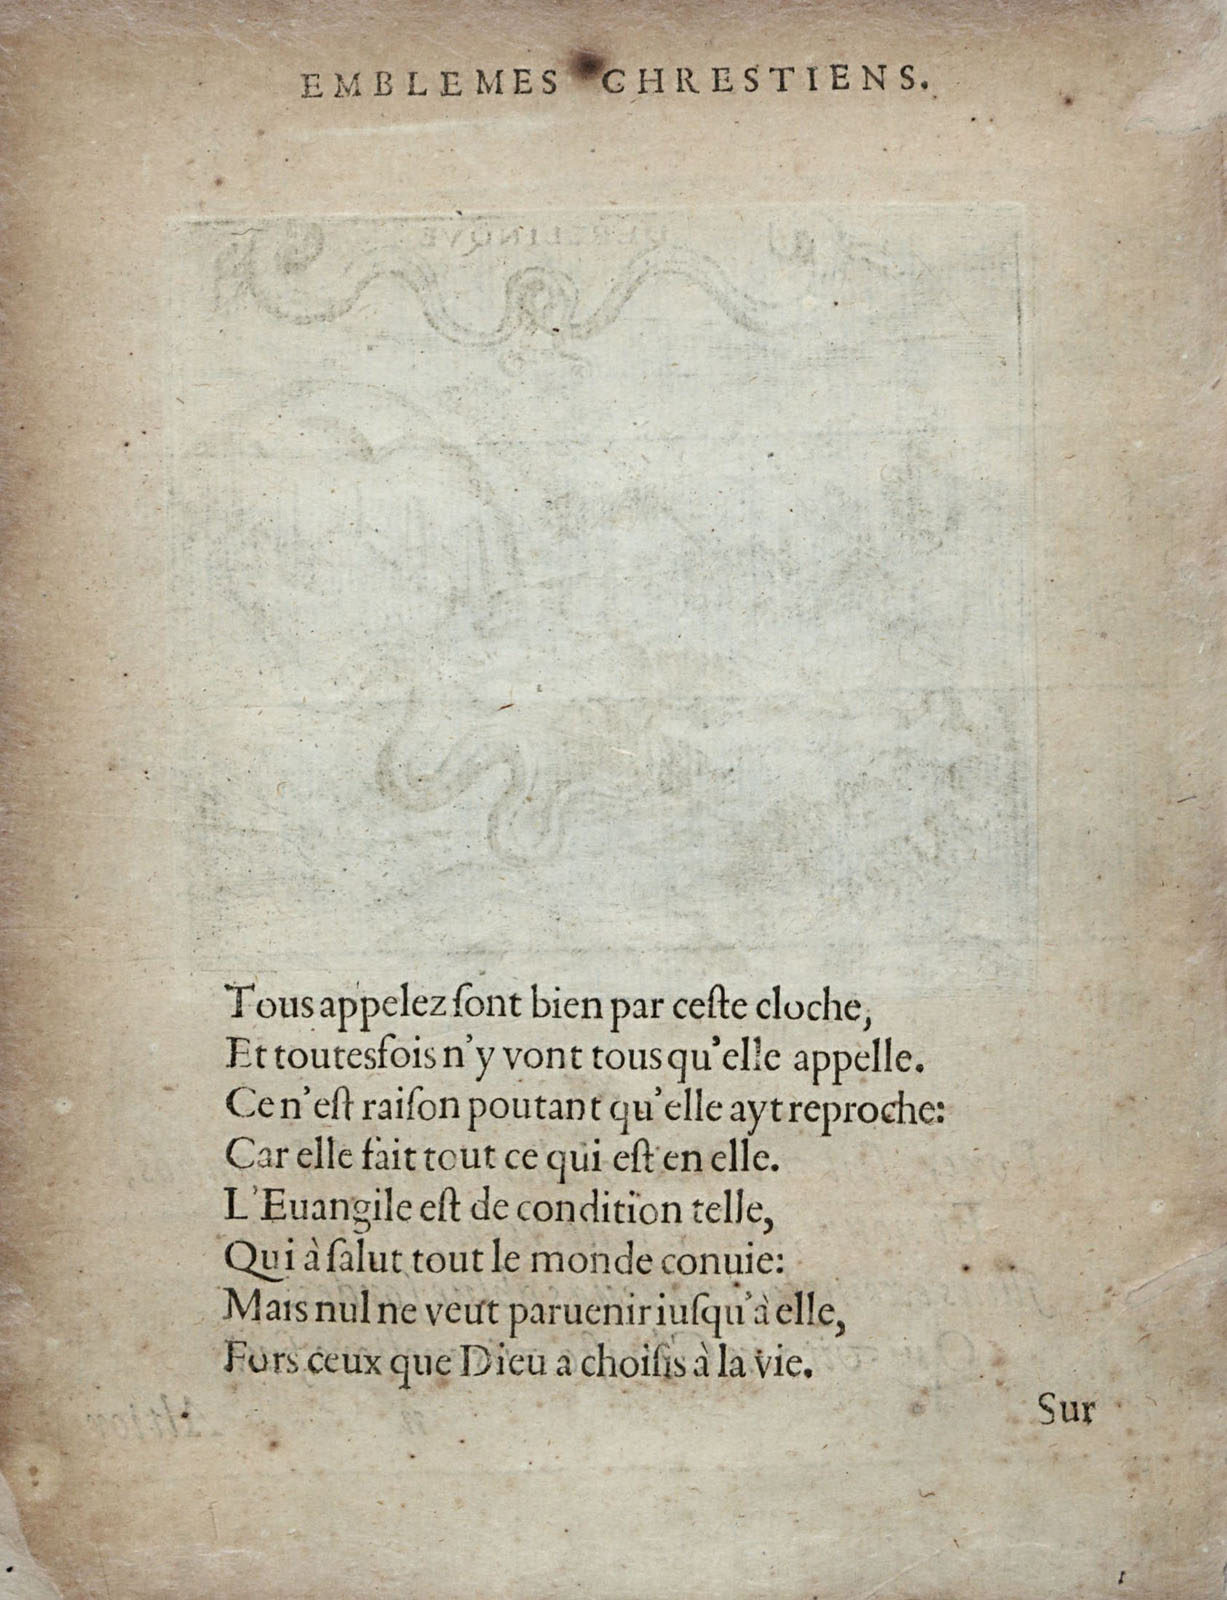 EMBLEMES CHRESTIENS.
Tous appelez ſont bien par ceſte cloche,
Et toutesfois n'y vont tous qu'elle appelle.
Ce n'eſt raiſon poutant qu'elle ayt reproche:
Car elle fait tout ce qui eſt en elle.
L'Euangile eſt de condition telle,
Qui à ſalut tout le monde conuie:
Mais nul ne veut paruenir iuſqu'à elle,
Fors ceux que Dieu a choiſis à la vie.
Sur